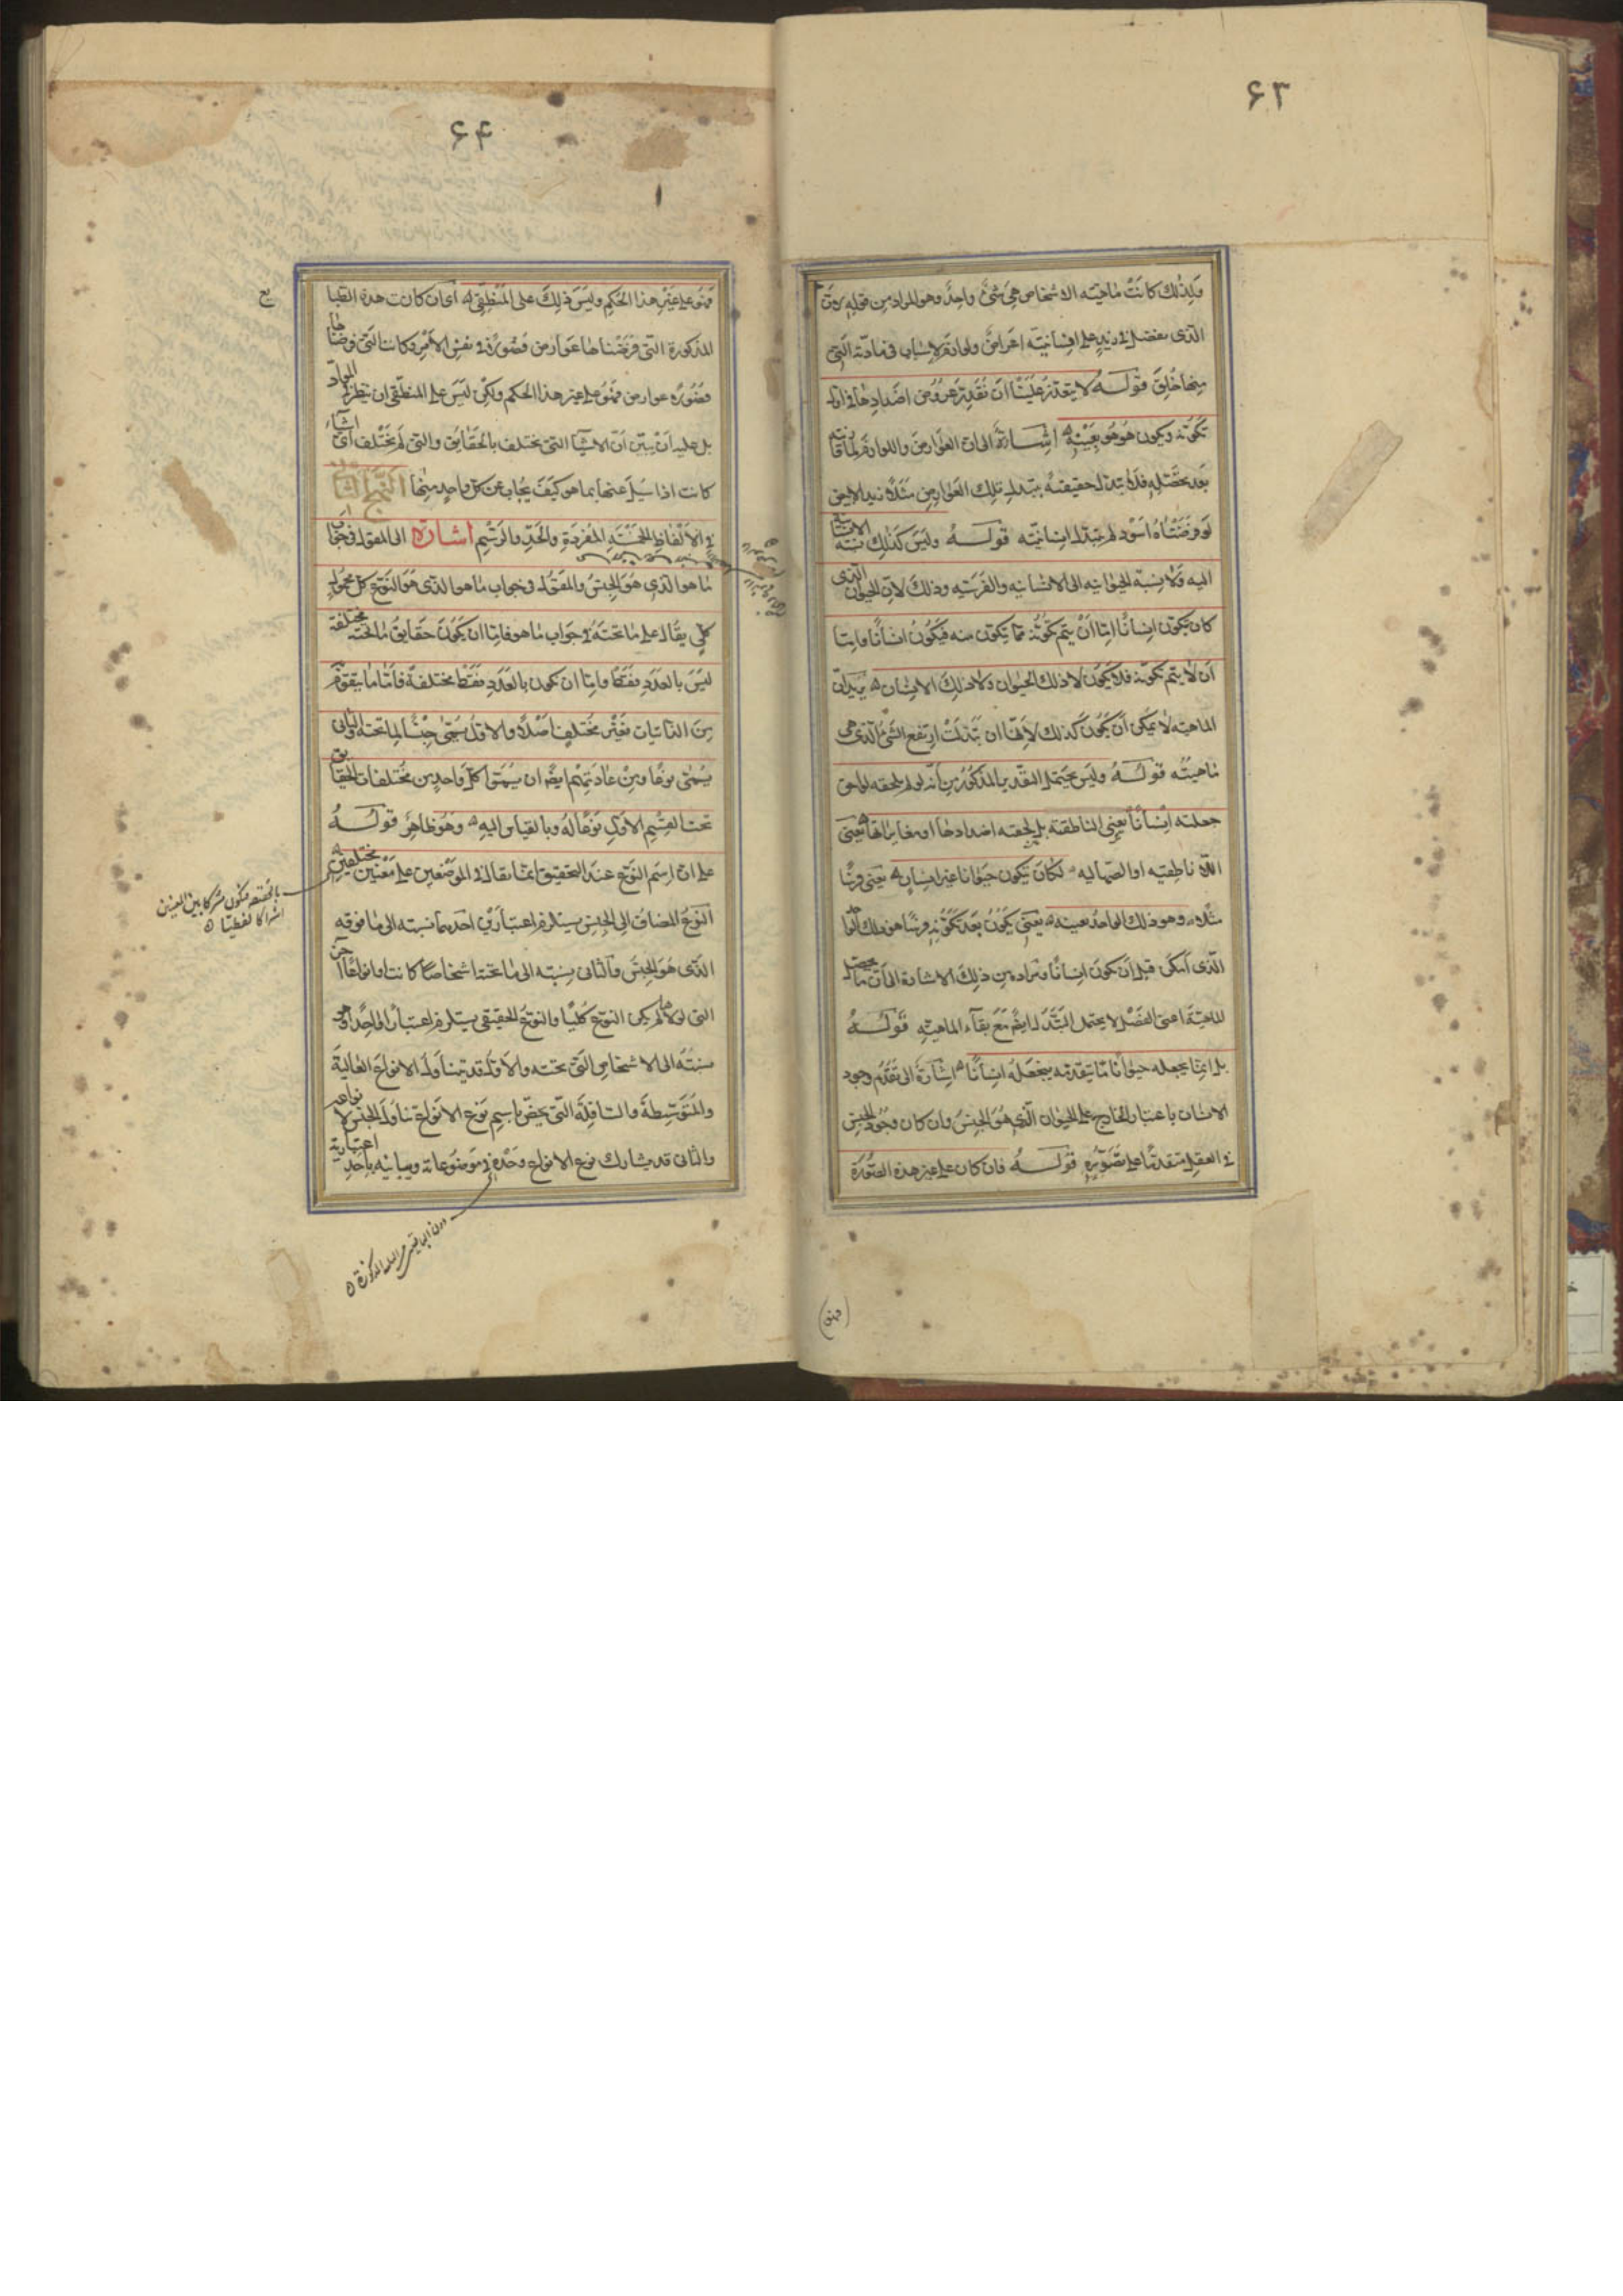 ۶۳
ولذلك كانت ماهية الاشخاص هى شئ واحد وهو المراد من قوله
الذى يفضل فى زيد على انسانيته اعراض ولوازم لاسباب فى مادته التى
منها خلق قوله لا يتعذر علينا ان نقدر عروض اضدادها فى اول
تكونه ويكون هو هو بعينه اشارة الى ان العوارض واللوازم
بعد تحصله فلا تبدل حقيقته بتبدل تلك العوارض مثلا زيد الابيض
لو فرضناه اسود لم تتبدل انسانيته قوله وليس كذلك نسبة الانسانية
اليه ولا نسبة الحيوانيه الى الانسانيه والفرسيه وذلك لان الحيوان الذى
كان يتكون انسانا اما ان يتم تكونه مما يتكون منه فيكون انسانا واما
ان لا يتم تكونه فلا يكون لا ذلك الحيوان ولا ذلك الانسان يريد ان
الماهيه لا يمكن ان يكون كذلك لانها ان تبدلت ارتفع الشئ الذى هى
ماهيته قوله وليس يحتمل التقدير المذكور من انه لو لم يلحقه لواحق
جعلته انسانا يعنى الناطقة بل لحقته اضدادها او مغايراتها يعنى
اللا ناطقيه او الصهاليه لكان يتكون حيوانا غير انسان يعنى فرسا
مثلا وهو ذلك الواحد بعينه يعنى يكون بعد تكونه فرسا هو ذلك الواحد
الذى امكن قبل ان يكون انسانا ومراده من ذلك الاشارة الى ان ما يحصل
الماهية اعنى الفصل لا يحتمل التبدل ايضم مع بقاء الماهيه قوله
بل انما يجعله حيوانا ما يتقدمه فيجعله انسانا اشارة الى تقدم وجود
الانسان باعتبار الخارج على الحيوان الذى هو الجنس وان كان وجود الجنس
فى العقل متقدما على تصوره قوله فان كان على غير هذه الصورة
۶۴
فهو على غير هذا الحكم وليس ذلك على المنطقى اى ان كانت هذه
المذكورة التى فرضناها عوارض فصوره فى نفس الامر وكانت التى فرضناها
فصوره عوارض فهو على غير هذا الحكم ولكن ليس على المنطقى ان ينظر فى المواد
بل عليه ان يبين ان الاشيا التى تختلف بالحقايق والتى لم تختلف اى اشياء
كانت اذا سيل عنها بما هو كيف يجاب عن كل واحد منها النهج الثانى
فى الالفاظ الخمسة المفردة والحد والرسم اشارة الى المقول فى جواب
ما هو الذى هو الجنس والمقول فى جواب ما هو الذى هو النوع كل محمول
كلى يقال على ما تحته فى جواب ما هو فاما ان يكون حقايق ما تحته مختلفة
ليس بالعدد فقط واما ان تكون بالعدد فقط مختلفة فاما ما يتقوم
من الذاتيات فغير مختلف اصلا والاول يسمى جنسا لما تحته والثانى
يسمى نوعا ومن عادتهم ايضا ان يسموا كل واحد من مختلفات الحقايق
تحت القسم الاول نوعا له وبالقياس اليه وهو ظاهر قوله
على ان اسم النوع عند التحقيق انما يقال فى الموضعين على معنيين مختلفين
النوع المضاف الى الجنس يستلزم اعتبارين احدهما نسبته الى ما فوقه
الذى هو الجنس والثانى نسبته الى ما تحته اشخاصا كانت او انواعا اخر
التى لولاها لم يكن النوع كليا والنوع الحقيقى يستلزم اعتبارا واحدا وهو
نسبته الى الاشخاص التى تحته والاول قد يتناول الانواع العالية
والمتوسطة والسافلة التى يخص باسم نوع الانواع تناول الجنس لانواعه
والثانى قد يشارك نوع الانواع وحده فى موضوعاته ويباينه باحد اعتبارية
مشتركا بين المعنيين
اشتراكا لفظيا